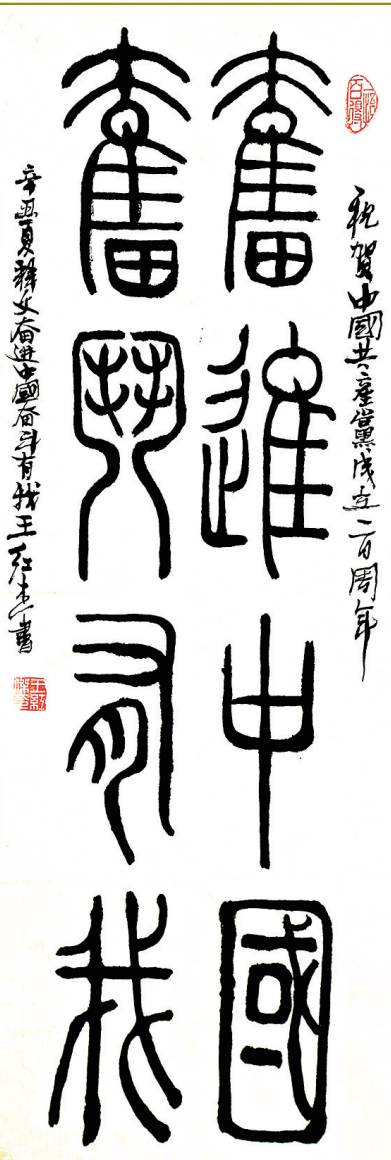 祝賀中國共產黨成立一百周年
奮進中國
奮鬥有我
辛丑夏釋文奋进中國奋斗有我王红杰書